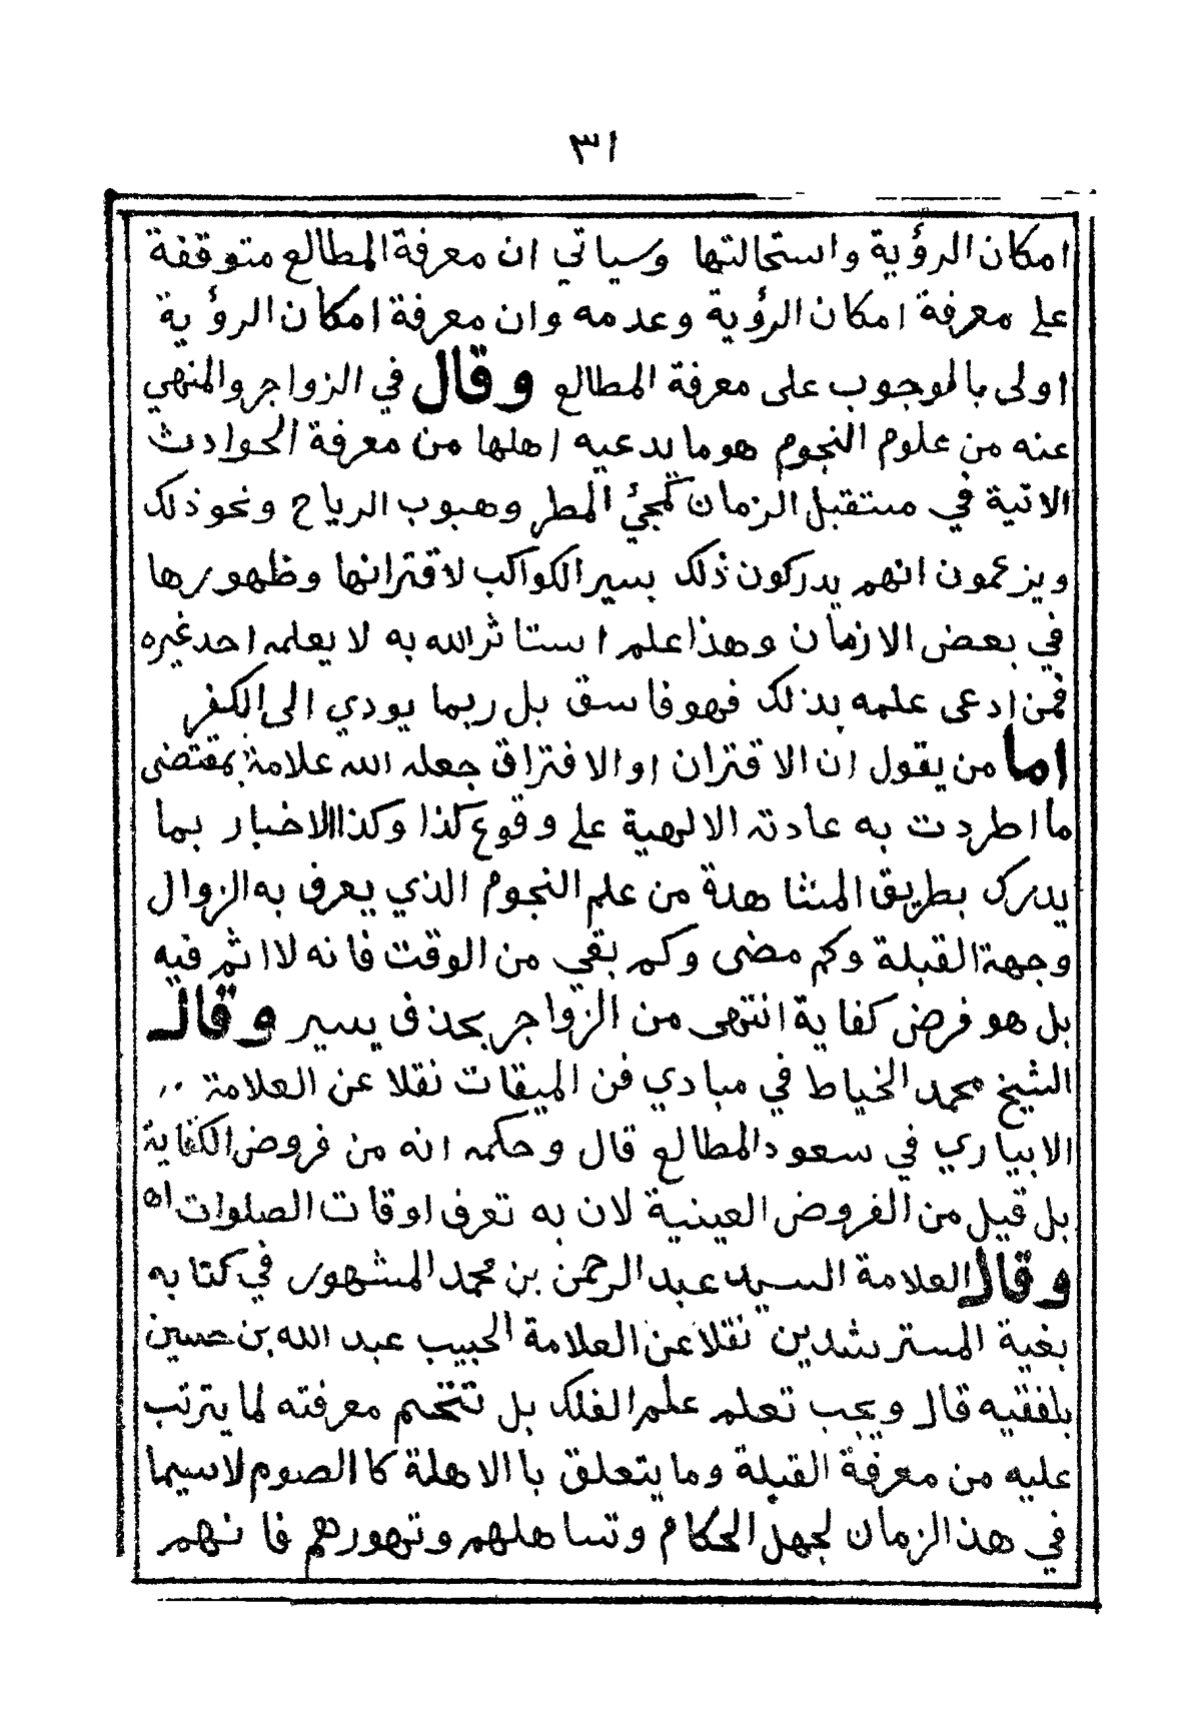 ٣١
امكان الرؤية واستحالتها وسياتي ان معرفة المطالع متوقفة
على معرفة امكان الرؤية وعدمه وان معرفة امكان الرؤية
اولى بالوجوب على معرفة المطالع وقال في الزواجر والمنهي
عنه من علوم النجوم هو ما يدعيه اهلها من معرفة الحوادث
الاتية في مستقبل الزمان كمجئ المطر وهبوب الرياح ونحو ذلك
ويزعمون انهم يدركون ذلك بسير الكواكب لاقترانها وظهورها
في بعض الازمان وهذا علم استاثر الله به لا يعلمه احد غيره
فمن ادعى علمه بذلك فهو فاسق بل ربما يودي الى الكفر
اما من يقول ان الاقتران او الافتراق جعله الله علامة بمقتضى
ما اطردت به عادته الالهية على وقوع كذا وكذا الاخبار بما
يدرك بطريق المشاهدة من علم النجوم الذي يعرف به الزوال
وجهة القبلة وكم مضى وكم بقي من الوقت فانه لا اثم فيه
بل هو فرض كفاية انتهى من الزواجر بحذف يسير وقال
الشيخ محمد الخياط في مبادي فن الميقات نقلا عن العلامة
الابياري في سعود المطالع قال وحكمه انه من فروض الكفاية
بل قيل من الفروض العينية لان به تعرف اوقات الصلوات اه
وقال العلامة السيد عبد الرحمن بن محمد المشهور في كتابه
بغية المسترشدين نقلا عن العلامة الحبيب عبد الله بن حسين
بلفقيه قال ويجب تعلم علم الفلك بل تتحتم معرفته لما يترتب
عليه من معرفة القبلة وما يتعلق با الاهلة كا الصوم لاسيما
في هذ الزمان لجهل الحكام وتساهلهم وتهورهم فانهم